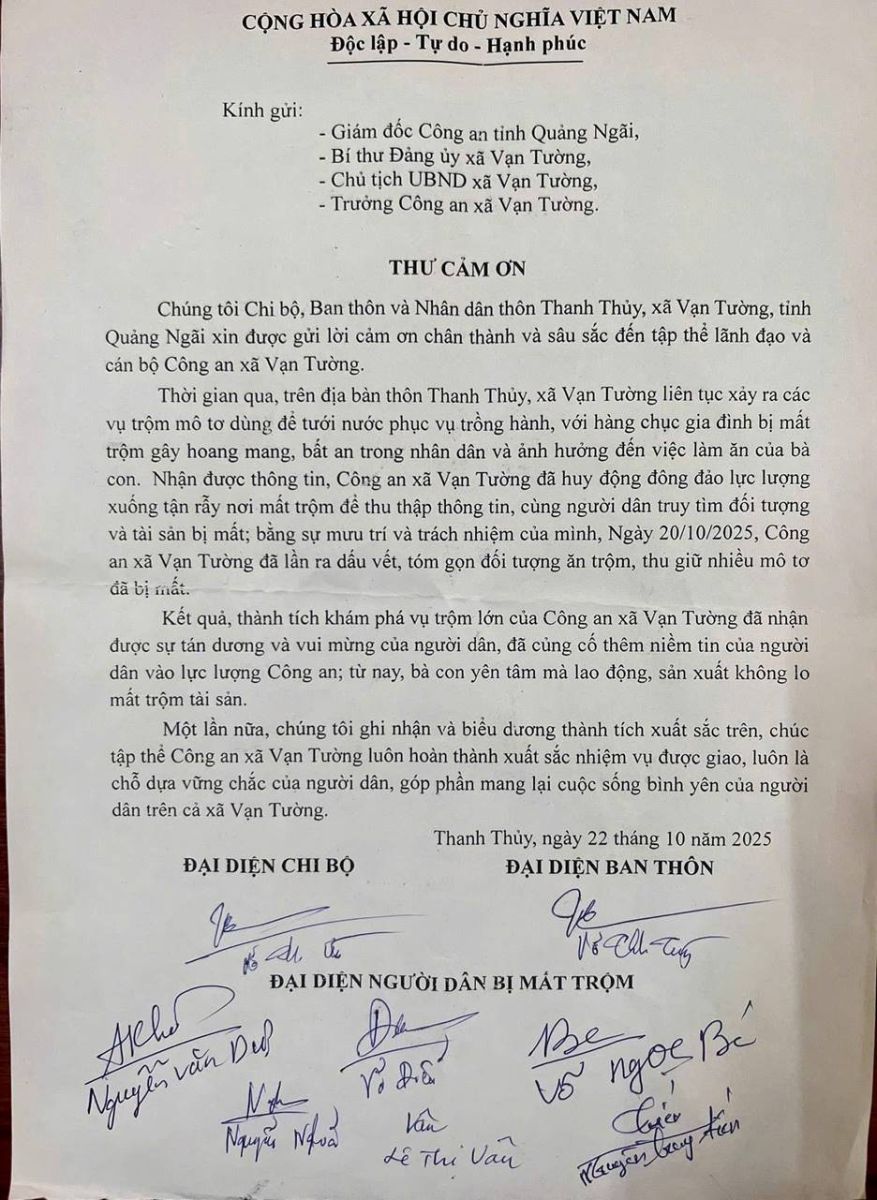 CỘNG HÒA XÃ HỘI CHỦ NGHĨA VIỆT NAM
Độc lập - Tự do - Hạnh phúc
Kính gửi:
- Giám đốc Công an tỉnh Quảng Ngãi,
- Bí thư Đảng ủy xã Vạn Tường,
- Chủ tịch UBND xã Vạn Tường,
- Trưởng Công an xã Vạn Tường.
THƯ CẢM ƠN
Chúng tôi Chi bộ, Ban thôn và Nhân dân thôn Thanh Thủy, xã Vạn Tường, tỉnh
Quảng Ngãi xin được gửi lời cảm ơn chân thành và sâu sắc đến tập thể lãnh đạo và
cán bộ Công an xã Vạn Tường.
Thời gian qua, trên địa bàn thôn Thanh Thủy, xã Vạn Tường liên tục xảy ra các
vụ trộm mô tơ dùng để tưới nước phục vụ trồng hành, với hàng chục gia đình bị mất
trộm gây hoang mang, bất an trong nhân dân và ảnh hưởng đến việc làm ăn của bà
con. Nhận được thông tin, Công an xã Vạn Tường đã huy động đông đảo lực lượng
xuống tận rẫy nơi mất trộm để thu thập thông tin, cùng người dân truy tìm đối tượng
và tài sản bị mất; bằng sự mưu trí và trách nhiệm của mình, Ngày 20/10/2025, Công
an xã Vạn Tường đã lần ra dấu vết, tóm gọn đối tượng ăn trộm, thu giữ nhiều mô tơ
đã bị mất.
Kết quả, thành tích khám phá vụ trộm lớn của Công an xã Vạn Tường đã nhận
được sự tán dương và vui mừng của người dân, đã củng cố thêm niềm tin của người
dân vào lực lượng Công an; từ nay, bà con yên tâm mà lao động, sản xuất không lo
mất trộm tài sản.
Một lần nữa, chúng tôi ghi nhận và biểu dương thành tích xuất sắc trên, chúc
tập thể Công an xã Vạn Tường luôn hoàn thành xuất sắc nhiệm vụ được giao, luôn là
chỗ dựa vững chắc của người dân, góp phần mang lại cuộc sống bình yên của người
dân trên cả xã Vạn Tường.
Thanh Thủy, ngày 22 tháng 10 năm 2025
ĐẠI DIỆN CHI BỘ ĐẠI DIỆN BAN THÔN
ĐẠI DIỆN NGƯỜI DÂN BỊ MẤT TRỘM
Be
Nguyễn Văn
Võ
Võ Ngọc Bé
Nguyễn
Vân
Lê Thị Vân
Nguyễn